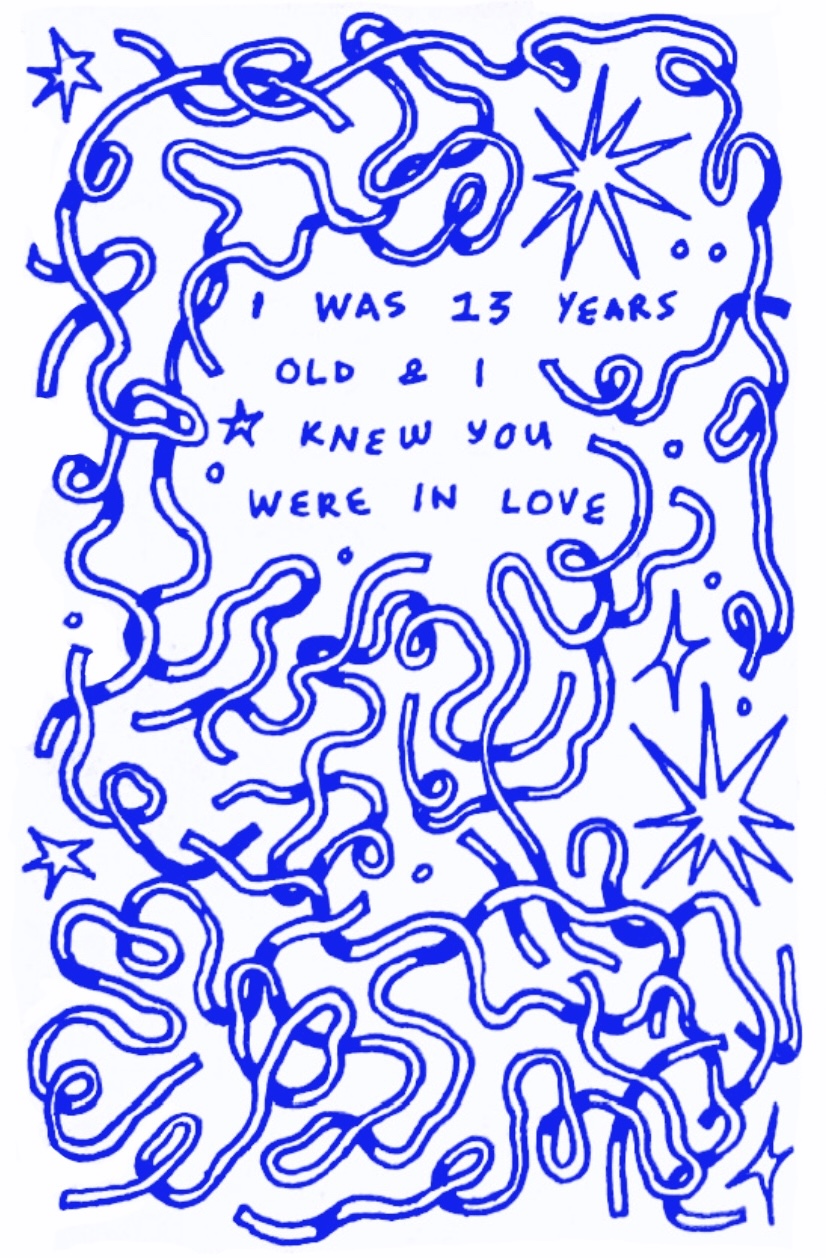 I WAS 13 YEARS
OLD & I
KNEW YOU
WERE IN LOVE